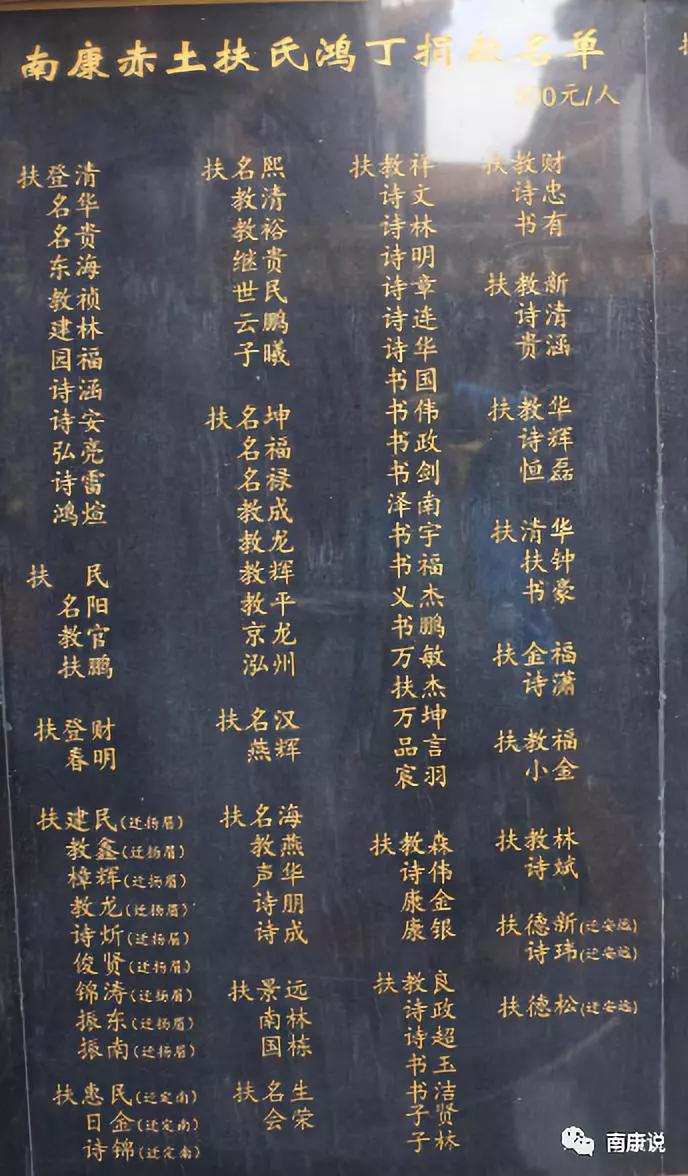 南康赤土扶氏鸿丁捐款名单
500元/人
扶登清
名华
名贵
东海
教祯
建林
园福
诗涵
诗安
弘亮
诗雷
鸿煊
扶 民
名阳
教官
扶鹏
扶登财
春明
扶建民(迁扬眉)
教鑫(迁扬眉)
樟辉(迁扬眉)
教龙(迁扬眉)
诗炘(迁扬眉)
俊贤(迁扬眉)
锦涛(迁扬眉)
振东(迁扬眉)
振南(迁扬眉)
扶惠民(迁定南)
日金(迁定南)
诗锦(迁定南)
扶名熙
教清
教裕
继贵
世民
云鹏
子曦
扶名坤
名福
名禄
教成
教龙
教辉
教平
京龙
泓州
扶名汉
燕辉
扶名海
教燕
声华
诗朋
诗成
扶景远
南林
国栋
扶名生
会荣
扶教祥
诗文
诗林
诗明
诗章
诗连
诗华
书国
书伟
书政
书剑
泽南
书宇
书福
义杰
书鹏
万敏
扶杰
万坤
品言
宸羽
扶教森
诗伟
康金
康银
扶教良
诗政
诗超
书玉
书洁
子贤
子林
扶教财
诗忠
书有
扶教新
诗清
贵涵
扶教华
诗辉
恒磊
扶清华
扶钟
书豪
扶金福
诗潇
扶教福
小金
扶教林
诗斌
扶德新(迁安远)
诗玮(迁安远)
扶德松(迁安远)
南康说